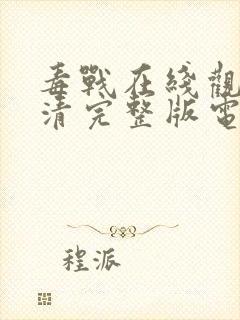 毒戰在綫觀
清完整版電
程派